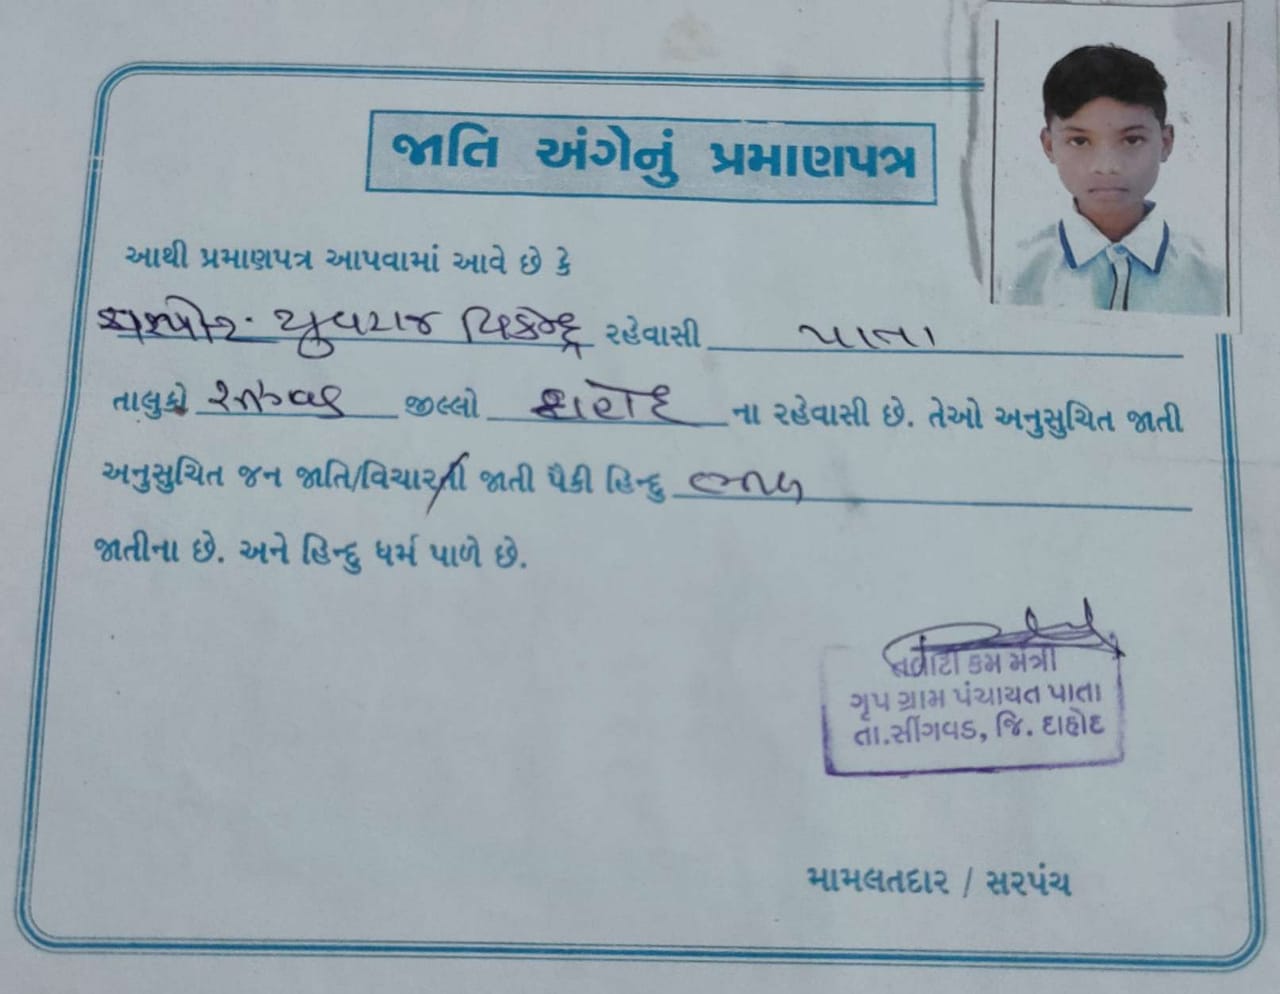 જાતિ અંગેનું પ્રમાણપત્ર
આથી પ્રમાણપત્ર આપવામાં આવે છે કે
યુવરાજ રહેવાસી પાતા
તાલુકો જીલ્લો દાહોદ ના રહેવાસી છે. તેઓ અનુસુચિત જાતી
અનુસુચિત જન જાતિ/વિચારતી જાતી પૈકી હિન્દુ
જાતીના છે. અને હિન્દુ ધર્મ પાળે છે.
તલાટી કમ મંત્રી
ગૃપ ગ્રામ પંચાયત પાતા
તા.સીંગવડ, જિ. દાહોદ
મામલતદાર / સરપંચ